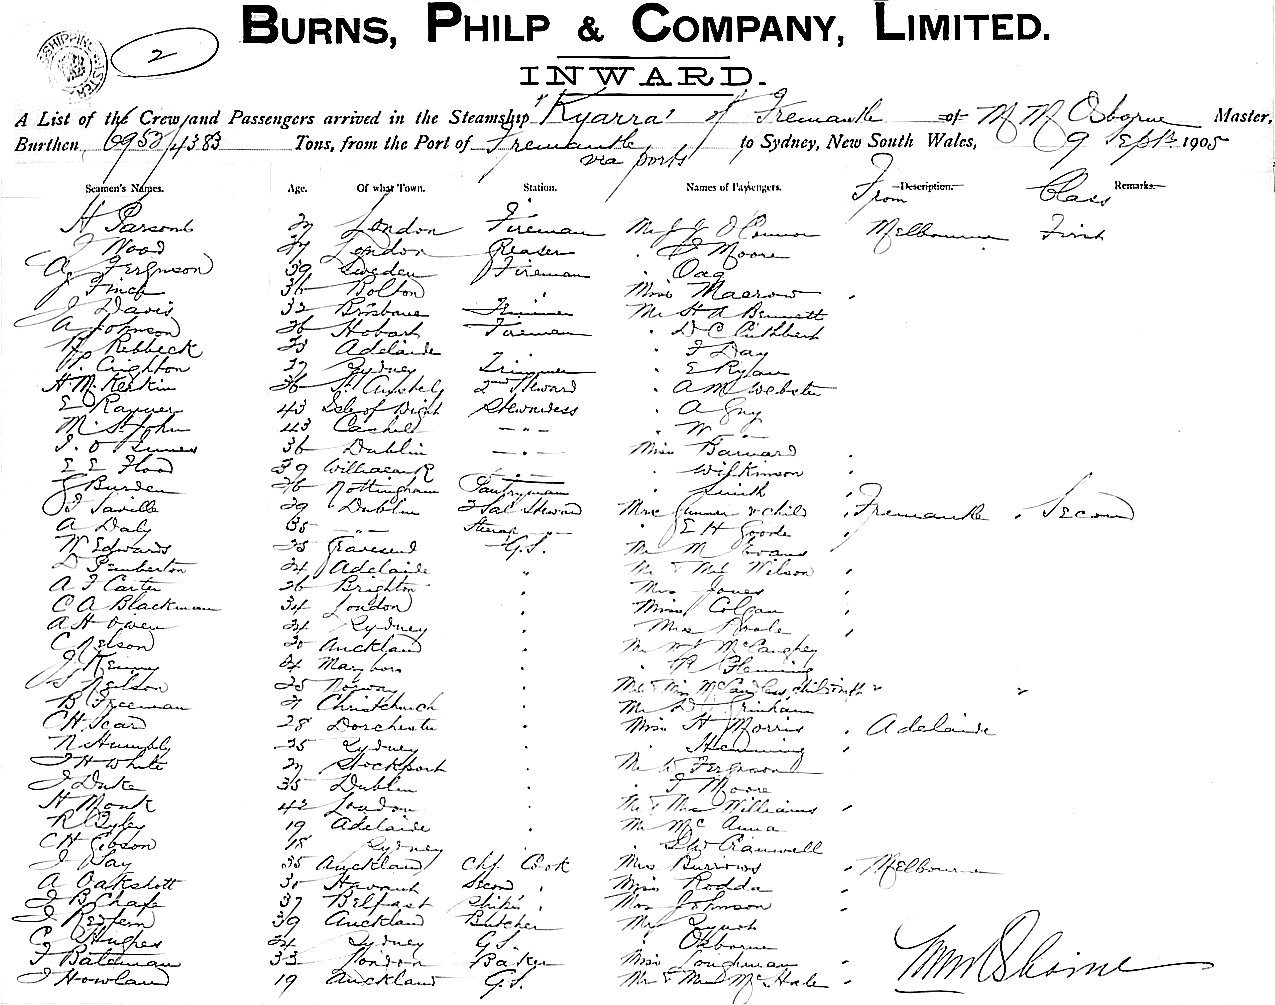 BURNS, PHILP & COMPANY, LIMITED.
2
INWARD.
A List of the Crew and Passengers arrived in the Steamship "Kyarra" of Fremantle of M M Osborne Master,
Burthen 6953/4383 Tons, from the Port of Fremantle via ports to Sydney, New South Wales, 9 Sept 1905
Seamen's Names. Age. Of what Town. Station. Names of Passengers. From Description. Class Remarks.
H Parsons 27 London Fireman Mr J J O'Connor Melbourne First
J Wood 27 London Greaser " J Moore
A Ferguson 39 Sweden Fireman " Oag
J Finch 36 Bolton " Miss Macrow "
J Davis 32 Brisbane Trimmer Mr H A Bennett
A Johnson 26 Hobart Fireman " D C Cuthbert
Rebbeck 23 Adelaide " F Day
P. Crighton 27 Sydney Trimmer " E Ryan
H McKerkin 36 2nd Steward " A M Webster
E Rayner 43 Isle of Wight Stewardess " A Guy
M. St John 43 Cashel - " - " W - " -
36 Dublin - " - Miss Barnard "
E E Flood 39 - " - " Wilkinson "
J Burden 26 Nottingham Pantryman " Smith "
J Saville 29 Dublin 2 Sal Steward Mrs Gunner & child " Fremantle " Second
A Daly 35 - " - Steerage - " - " E H Goode "
W Edwards 25 Gravesend G.S. Mr M Evans "
D Pemberton 24 Adelaide " Mr & Mrs Wilson "
A J Carter 26 Brighton " Mrs Jones "
C A Blackman 34 London " Miss Colgan "
A H Owen 24 Sydney " Mrs "
C Nelson 30 Auckland " Mr McCaughey
J Kenny 24 " Fleming
S Nelson 25 Norway " Mr & Mrs McCandless, child " "
B Freeman 21 Christchurch " Mr Grinham
C H Scard 28 Dorchester " Miss H Morris " Adelaide
N Humbly 25 Sydney " " Hemming "
J H White 27 Stockport " Mr Ferguson
J Duke 35 Dublin " " J Moore
H Monk 42 London " Mr & Mrs Williams "
19 Adelaide " Mr McAnna
C H Gibson 18 Sydney " Cranwell
J Day 35 Auckland Chf Cook Mrs Burrows " Melbourne
A Oakshott 30 Havant Second " Miss Rodda "
J B Chafe 37 Belfast " Mrs Johnson "
J Redfern 39 Auckland Butcher Mr
C Hughes 24 Sydney G.S. " Osborne
J Bateman 33 London Baker Miss Loughnan "
J Howland 19 Auckland G.S. Mr & Mrs McHale "